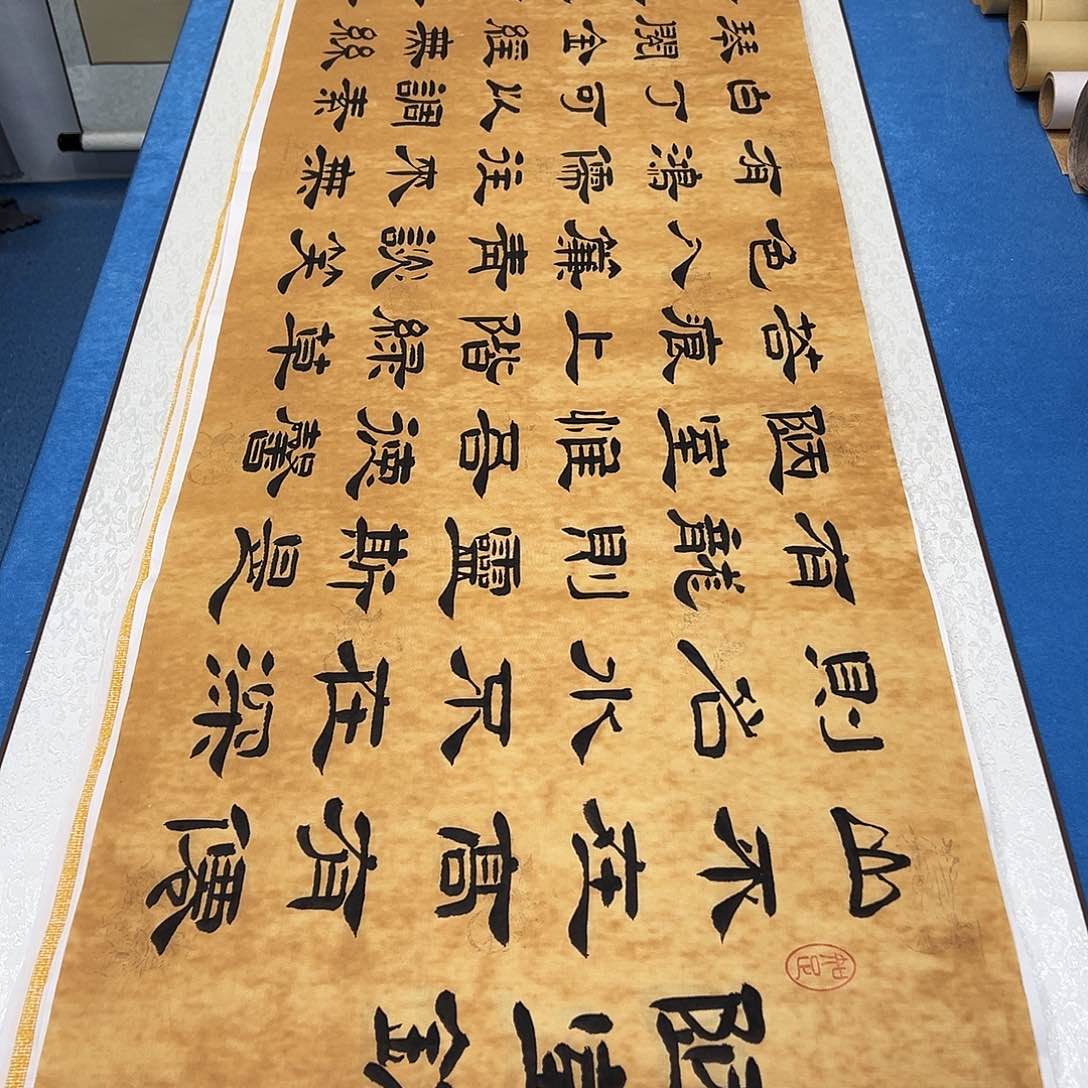 陋室銘
知足
山不在高有僊
則名水不在深
有龍則靈斯是
陋室惟吾德馨
苔痕上階綠草
色入簾青談笑
有鴻儒往來無
白丁可以調素
琴閱金經無絲